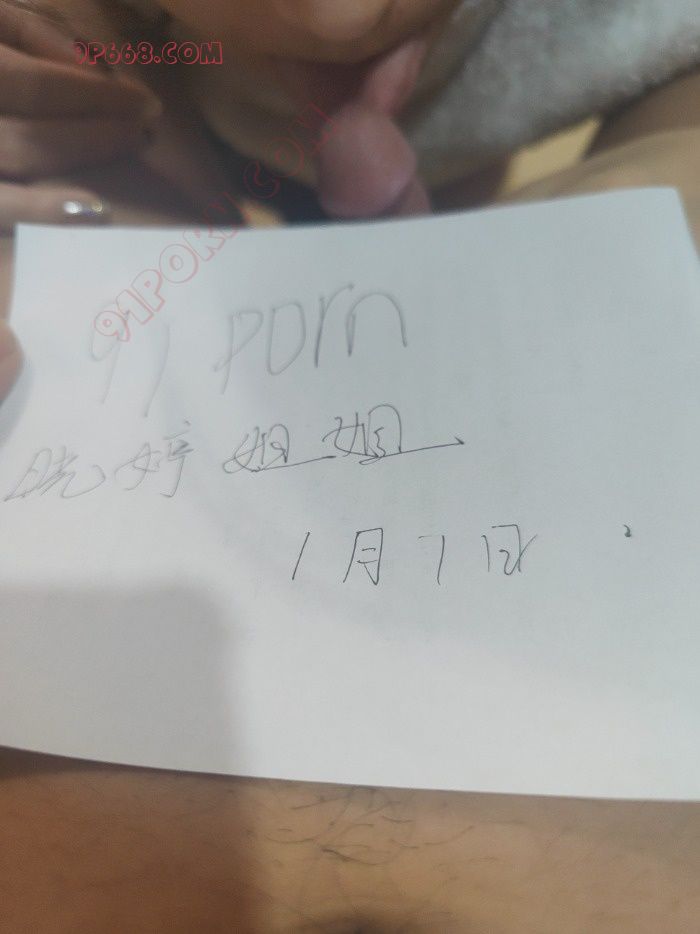 9P668.COM
91PORN.COM
91 porn
晓婷姐姐
1月7日